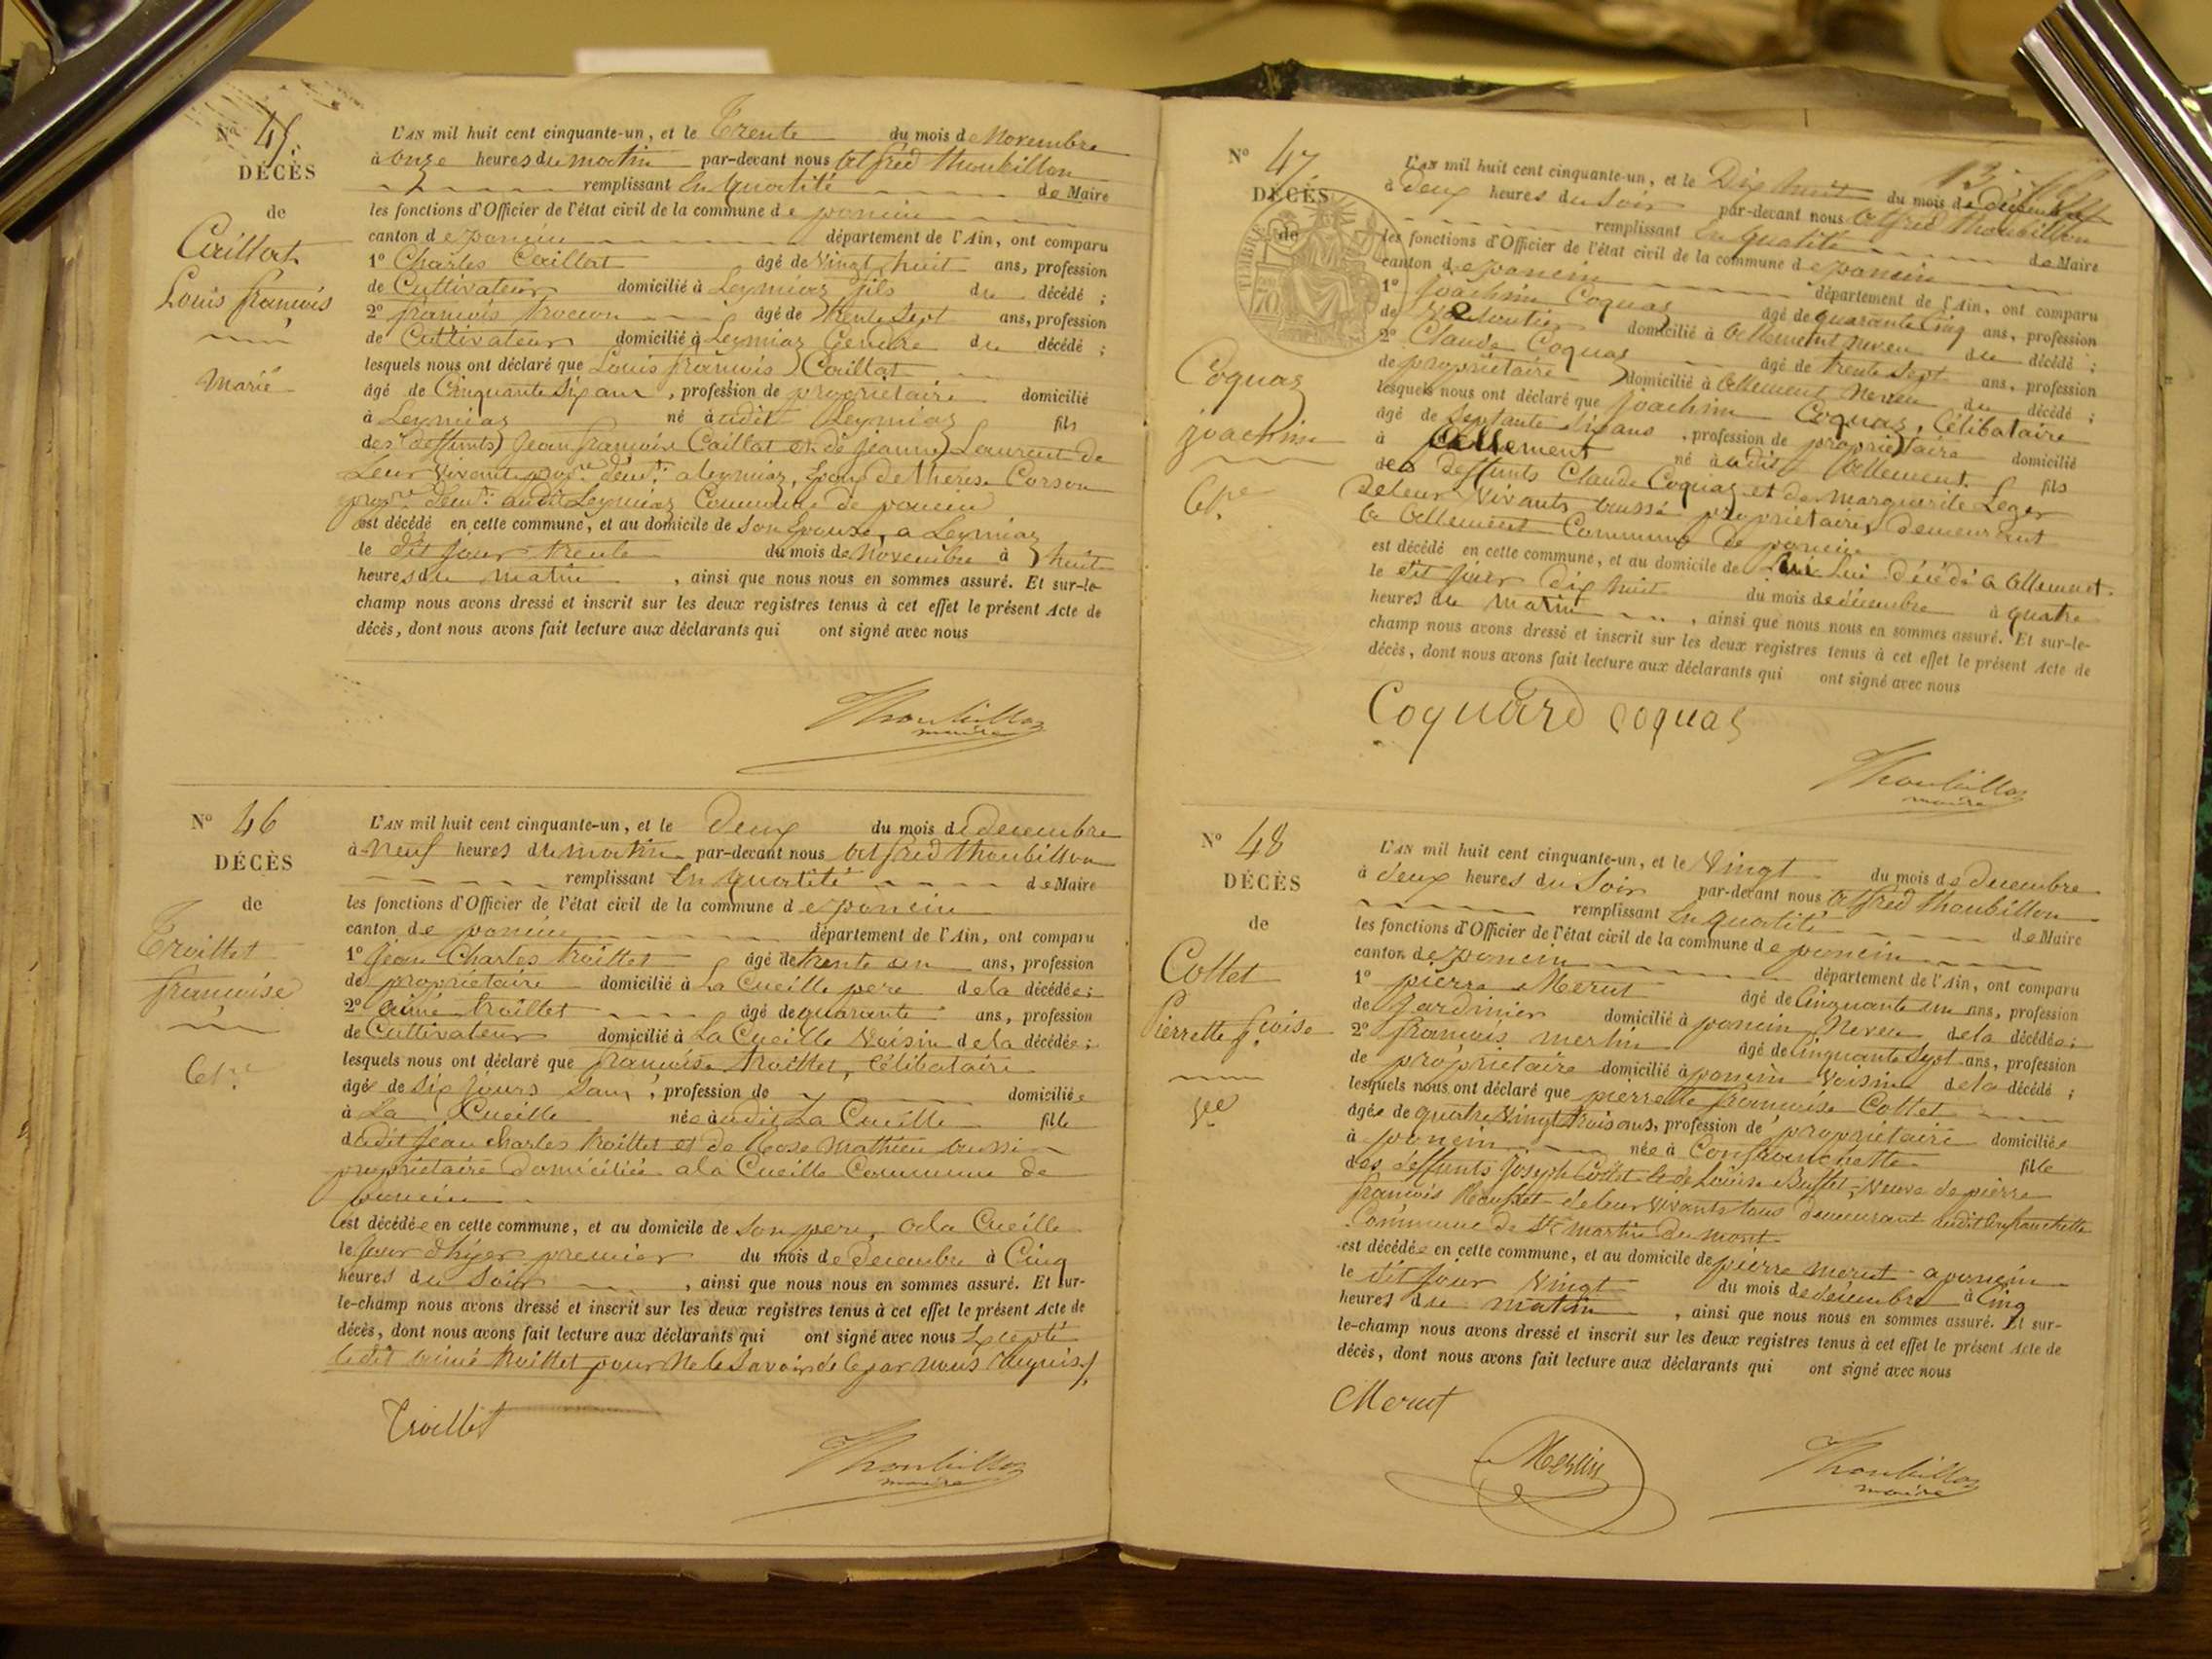 N° 45.
DÉCÈS
de
Caillat
Louis françois
Marié
L'AN mil huit cent cinquante-un, et le Trente du mois de Novembre
à onze heures du matin par-devant nous Alfred Thoubillon
remplissant En qualité de Maire
les fonctions d'Officier de l'état civil de la commune de poncin
canton de poncin département de l'Ain, ont comparu
1° Charles Caillat âgé de Vingt huit ans, profession
de Cultivateur domicilié à Leymiaz fils du décédé ;
2° françois trocon âgé de trente Sept ans, profession
de Cultivateur domicilié à Leymiaz Gendre du décédé ;
lesquels nous ont déclaré que Louis françois Caillat
âgé de Cinquante Six ans, profession de propriétaire domicilié
à Leymiaz né audit Leymiaz fils
des deffunts Jean françois Caillat et de Jeanne Laurent de
Leur Vivant prop.re demt. a leymiaz, Epoux de therese Corson
prop.re demt. audit Leymiaz Commune de poncin
est décédé en cette commune, et au domicile de Son Epouse, a Leymiaz
le dit jour trente du mois de Novembre à huit
heures du matin, ainsi que nous nous en sommes assuré. Et sur-le-
champ nous avons dressé et inscrit sur les deux registres tenus à cet effet le présent Acte de
décès, dont nous avons fait lecture aux déclarants qui ont signé avec nous
Thoubillon
maire
N° 46
DÉCÈS
de
Troillet
françoise
Cé.re
L'AN mil huit cent cinquante-un, et le Deux du mois de decembre
à Neuf heures du matin par-devant nous Alfred Thoubillon
remplissant En qualité de Maire
les fonctions d'Officier de l'état civil de la commune de poncin
canton de poncin département de l'Ain, ont comparu
1° Jean Charles troillet âgé de trente un ans, profession
de propriétaire domicilié à La Cueille pere de la décédée ;
2° aimé troillet âgé de quarante ans, profession
de Cultivateur domicilié à La Cueille Voisin de la décédée ;
lesquels nous ont déclaré que françoise troillet, Célibataire
âgée de Six Jours Sans, profession de domiciliée
à La Cueille née audit La Cueille fille
dudit Jean charles troillet et de Rose Mathieu aussi
propriétaire Domiciliée a la Cueille Commune de
poncin
est décédée en cette commune, et au domicile de Son pere, a la Cueille
le Jour d'hyer premier du mois de decembre à Cinq
heures du Soir, ainsi que nous nous en sommes assuré. Et sur-
le-champ nous avons dressé et inscrit sur les deux registres tenus à cet effet le présent Acte de
décès, dont nous avons fait lecture aux déclarants qui ont signé avec nous Excepté
ledit aimé troillet pour ne le Savoir de ce par nous requis.
Troillet
Thoubillon
maire
N° 47
DÉCÈS
de
TIMBRE
70
Coquaz
joachim
Cé.re
L'AN mil huit cent cinquante-un, et le Dix huit du mois de décembre
à deux heures du Soir par-devant nous Alfred Thoubillon
remplissant En qualité de Maire
les fonctions d'Officier de l'état civil de la commune de poncin
canton de poncin département de l'Ain, ont comparu
1° joachim Coquaz âgé de quarante Cinq ans, profession
de domicilié à Allement Neveu du décédé ;
2° Claude Coquaz âgé de trente Sept ans, profession
de propriétaire domicilié à Allement Neveu du décédé ;
lesquels nous ont déclaré que joachim Coquaz, Célibataire
âgé de Septante Six ans, profession de propriétaire domicilié
à allement né audit Allement fils
des deffunts Claude Coquaz et de Marguerite Leger
De leur Vivants aussi propriétaires demeurant
a Allement Commune de poncin
est décédé en cette commune, et au domicile de Lui décédé a Allement.
le dit jour dix huit du mois de décembre à quatre
heures du matin, ainsi que nous nous en sommes assuré. Et sur-le-
champ nous avons dressé et inscrit sur les deux registres tenus à cet effet le présent Acte de
décès, dont nous avons fait lecture aux déclarants qui ont signé avec nous
Coquard coquaz
Thoubillon
maire
N° 48
DÉCÈS
de
Collet
Pierrette f.çoise
V.ve
L'AN mil huit cent cinquante-un, et le Vingt du mois de Decembre
à deux heures du Soir par-devant nous Alfred Thoubillon
remplissant En qualité de Maire
les fonctions d'Officier de l'état civil de la commune de poncin
canton de poncin département de l'Ain, ont comparu
1° pierre Merut âgé de Cinquante un ans, profession
de Jardinier domicilié à poncin Neveu de la décédée ;
2° françois merlin âgé de Cinquante Sept ans, profession
de propriétaire domicilié à poncin Voisin de la décédé ;
lesquels nous ont déclaré que pierrette françoise Collet
âgée de quatre Vingt trois ans, profession de propriétaire domiciliée
à poncin née à Confranchette fille
des deffunts Joseph Collet et de Louise Buffet, Veuve de pierre
françois de leur Vivants tous demeurant audit Confranchette
Commune de St. martin du mont
est décédée en cette commune, et au domicile de pierre merut a poncin
le dit jour Vingt du mois de décembre à Cinq
heures du matin, ainsi que nous nous en sommes assuré. Et sur-
le-champ nous avons dressé et inscrit sur les deux registres tenus à cet effet le présent Acte de
décès, dont nous avons fait lecture aux déclarants qui ont signé avec nous
Merut
Merlin
Thoubillon
maire